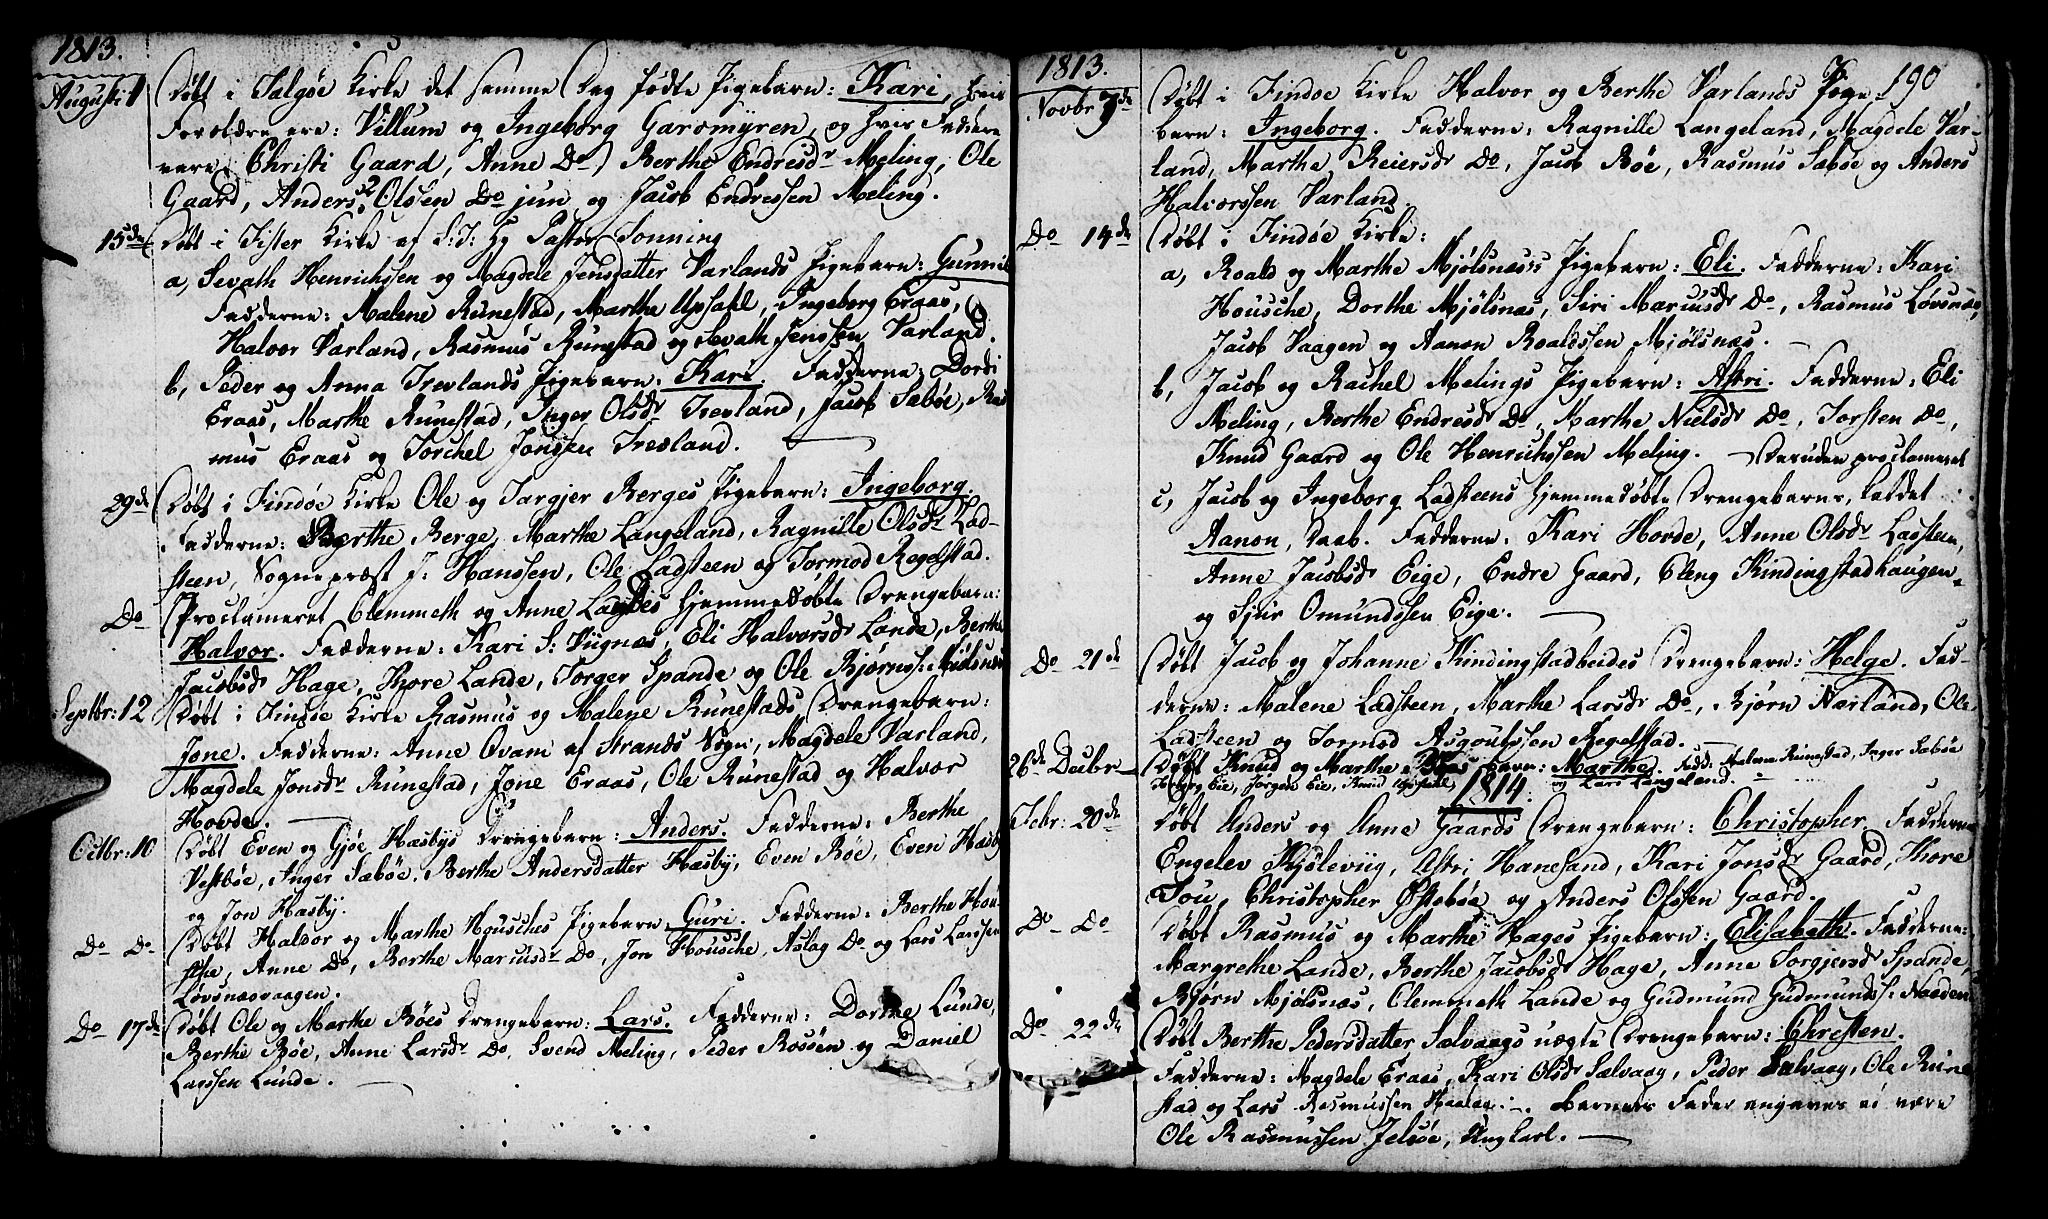 1813.
Augusti 1 Døbt i Talgøe Kirke det samme Dag fødte Pigebarn: Kari, hvis
Forældre ere: Villum og Ingeborg Garsmyren, og hvis Faddere
vare: Christi Gaard, Anne Do, Berthe Endresdr Meling, Ole
Gaard, Anders Olssen Do jun og Jacob Endressen Meling.
15de Døbt i Fister Kirke af S: T: Hr Pastor Tonning
a, Sevath Henrichssen og Magdele Jensdatter Varlands Pigebarn: Gunnil
Fadderne: Malene Runestad, Marthe Upsahl, Ingeborg Eraas,
Halvor Varland, Rasmus Runestad og Sevath Jenssen Varland.
b, Peder og Anna Trevlands Pigebarn: Kari. Fadderne: Dordi
Eraas, Marthe Runestad, Inger Olsdr Trevland, Jacob Sæbøe, Ras
mus Eraas og Torchel Jonssen Trevland.
29de Døbt i Findøe Kirke Ole og Targjer Berges Pigebarn: Ingeborg.
Fadderne: Berthe Berge, Marthe Langeland, Ragnille Olsdr Lad-
steen, Sognepræst J: Hanssen, Ole Ladsteen og Tormod Regelstad.
Do Proclameret Clemmeth og Anne Landes hjemmedøbte Drengebarn:
Halvor. Fadderne: Kari S: Viignæs, Eli Halvorsdr Lande, Berthe
Jacobsdr Hage, Thore Lande, Torger Spande og Ole Bjørns: Miölsnæs
Septbr: 12 Døbt i Findøe Kirke Rasmus og Malene Runestads Drengebarn:
Jone. Fadderne: Anne Ovam af Strands Sogn, Magdele Varland,
Magdele Jonsdr Runestad, Jone Eraas, Ole Runestad og Halvor
Hovde.
Octbr: 10 Døbt Even og Gjøe Hæsbys Drengebarn: Anders. Fadderne: Berthe
Vestbøe, Inger Sæbøe, Berthe Andersdatter Hæsby, Even Bøe, Even Hæsby
og Jon Hæsby.
Do Do Døbt Halvor og Marthe Housches Pigebarn: Guri. Fadderne: Berthe Hou-
sche, Anne Do, Berthe Mariusdr Do, Jon Housche, Aslag Do og Lars Larssen
Løvsnæsvaagen.
Do 17de Døbt Ole og Marthe Bøes Drengebarn: Lars. Fadderne: Dorthe Lunde,
Berthe Bøe, Anne Larsdr Do, Svend Meling, Peder Rossøen og Daniel
Larssen Lunde.
1813. 190
Novbr 7de Døbt i Findøe Kirke Halvor og Berthe Varlands Pige-
barn: Ingeborg. Fadderne: Ragnille Langeland, Magdele Var-
land, Marthe Reiersdr Do, Jacob Bøe, Rasmus Sæbøe og Anders
Halvorssen Varland.
Do 14de Døbt i Findøe Kirke:
a, Roald og Marthe Mjølsnæs's Pigebarn: Eli. Fadderne: Kari
Housche, Dorthe Mjølsnæs, Siri Mariusdr Do, Rasmus Løvsnæs,
Jacob Vaagen og Aanon Roaldssen Mjølsnæs.
b, Jacob og Rachel Melings Pigebarn: Astri. Fadderne: Eli
Meling, Berthe Endresdr Do, Marthe Nielsdr Do, Torsten Do,
Knud Gaard og Ole Henrichssen Meling. Desuden proclameret
c, Jacob og Ingeborg Ladsteens hjemmedøbte Drengebarns, kaldet
Aanon, Daab. Fadderne: Kari Hovde, Anne Olsdr Ladsteen,
Anne Jacobsdr Eige, Endre Gaard, Eleng Kindingstadhaugen
og Sjur Omundssen Eige.
Do 21de Døbt Jacob og Johanne Kindingstadbeides Drengebarn: Helge. Fad-
derne: Malene Ladsteen, Marthe Larsdr Do, Bjørn Nærland, Ole
Ladsteen og Tormod Asgoutssen Regelstad.
26de Decbr Døbt Knud og Marthe Barn: Marthe. Fadd: Malene Runestad, Inger Sæbøe
Eie, Jørgen Eie, Knud Upsahl og Lars Langeland.
1814.
Febr: 20de Døbt Anders og Anne Gaards Drengebarn: Christopher. Fadderne
Engelev Kjøleviig, Astri Hanesand, Kari Jonsdr Gaard, Thore
Tou, Christopher Østebøe og Anders Olssen Gaard.
Do Do Døbt Rasmus og Marthe Hages Pigebarn: Elisabeth. Fadderne:
Margrethe Lande, Berthe Jacobsdr Hage, Anne Torgjersdr Spande,
Bjørn Mjølsnæs, Clemmeth Lande og Gudmund Gudmunds: Naaden
Do 22de Døbt Berthe Pedersdatter Sælvaags uægte Drengebarn: Christen.
Fadderne: Magdele Eraas, Kari Olsdr Sælvaag, Peder Sælvaag, Ole Rune
stad og Lars Rasmussen Haaen. Barnets Fader angaves at være
Ole Rasmussen Jelsøe, Ungkarl.